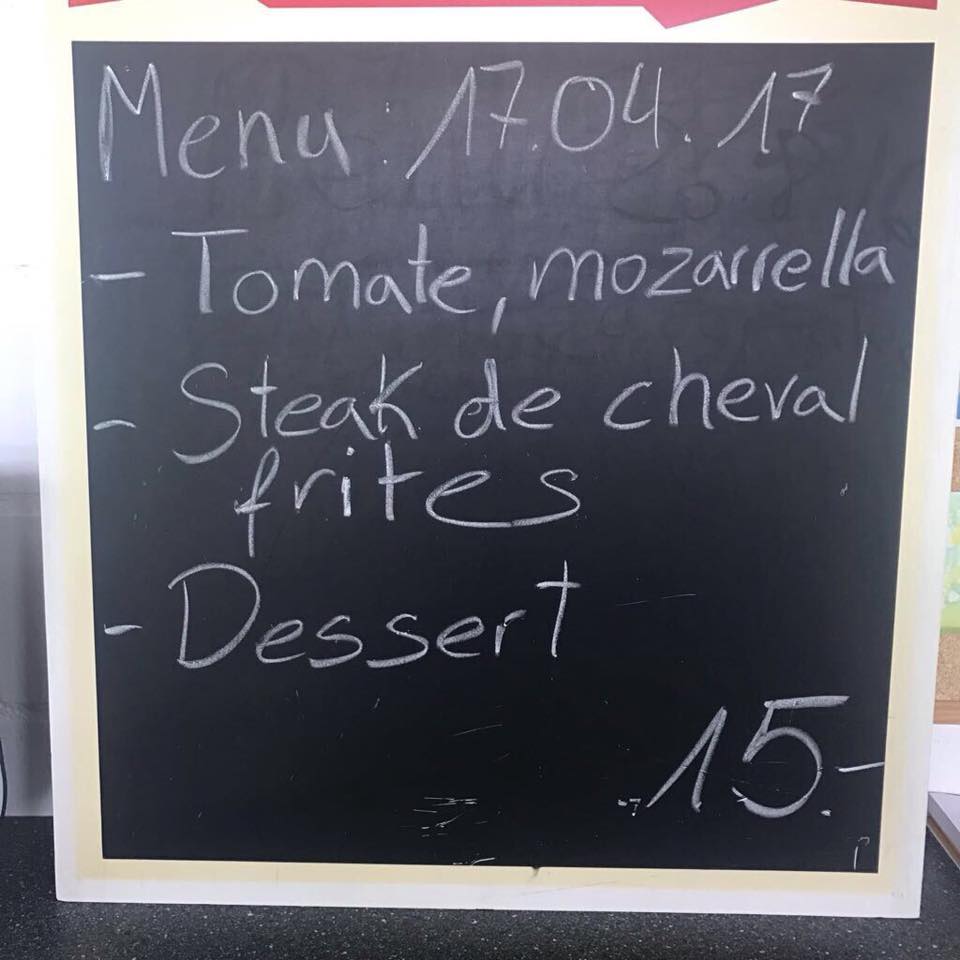 Menu : 17.04.17
- Tomate, mozarrella
- Steak de cheval
frites
- Dessert
15.-